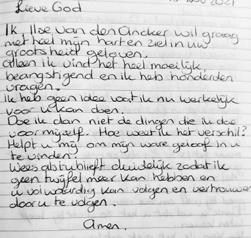 Lieve God
2021
Ik, Ilse van den Ancker wil graag
met heel mijn hart en ziel in uw
grootsheid geloven.
Alleen ik vind het heel moeilijk,
beangstigend en ik heb honderden
vragen.
Ik heb geen idee wat ik nu werkelijk
voor u kan doen.
Doe ik dan niet de dingen die ik doe
voor mijzelf. Hoe weet ik het verschil?
Helpt u mij om mijn ware geloof in u
te vinden.
Wees alstublieft duidelijk zodat ik
geen twijfel meer kan hebben en
u volwaardig kan volgen en vertrouwen
door u te volgen.
Amen.